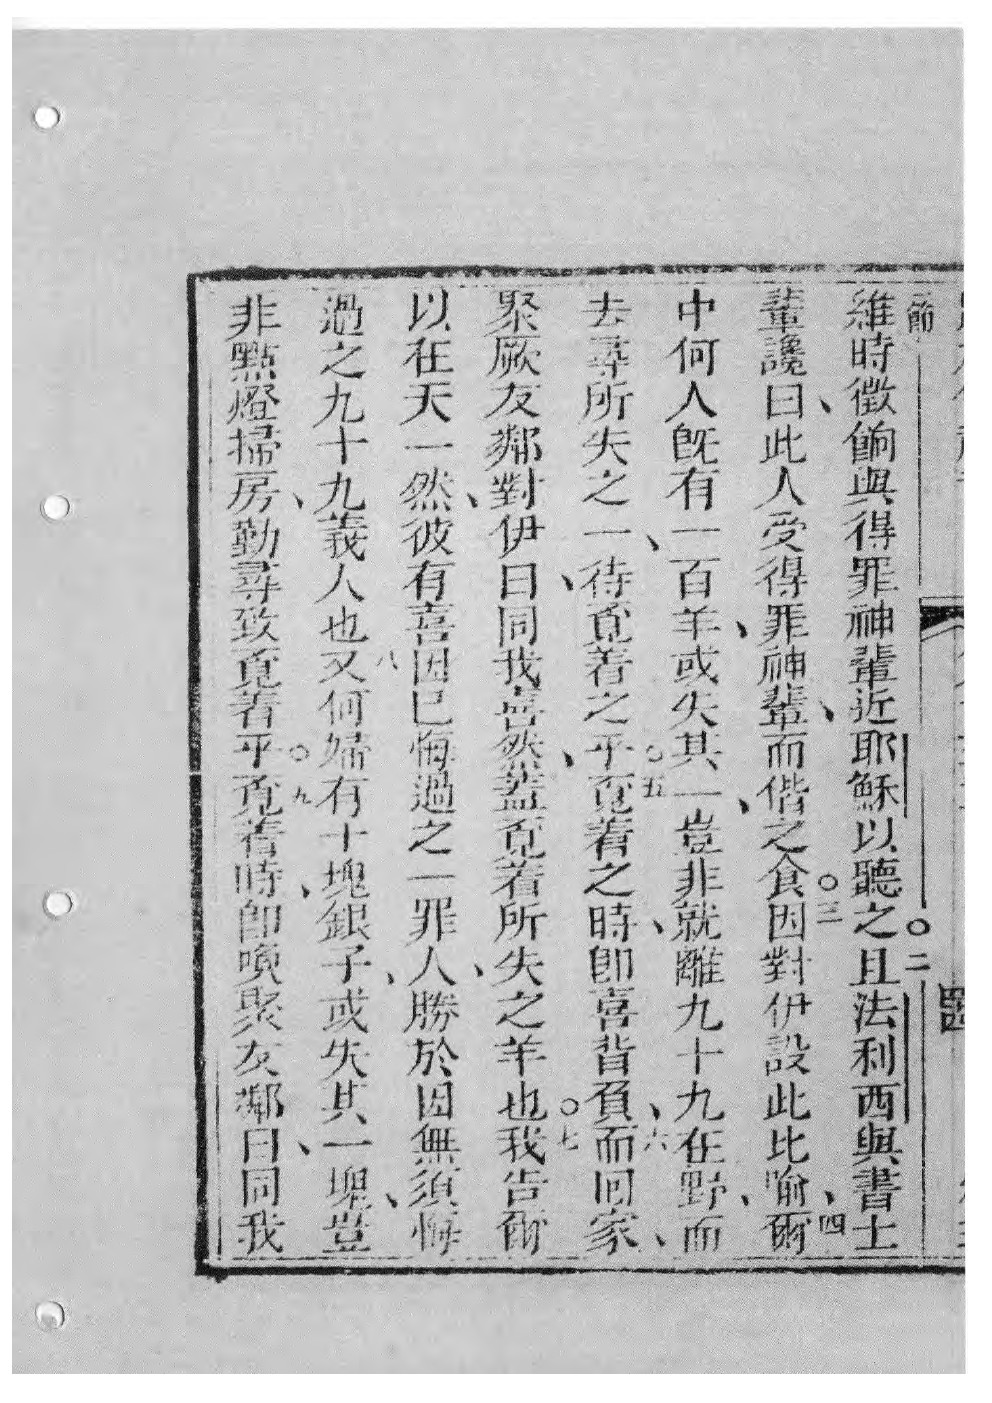 節
維時徵餉與得罪神輩近耶穌以聽之○二且法利西與書士
輩讒曰、此人受得罪神輩、而偕之食○三因對伊設此比喻、四爾
中何人既有一百羊、或失其一、豈非就離九十九在野、而
去尋所失之一、待覓着之乎○五覓着之時、即喜背負、六而回家、
聚厥友鄰對伊曰、同我喜然、蓋覓着所失之羊也○七我告爾
以在天一然、彼有喜因已悔過之一罪人、勝於因無須悔
過之九十九義人也八又何婦有十塊銀子、或失其一塊、豈
非點燈掃房、勤尋致覓着乎○九覓着時、即喚聚友鄰曰、同我